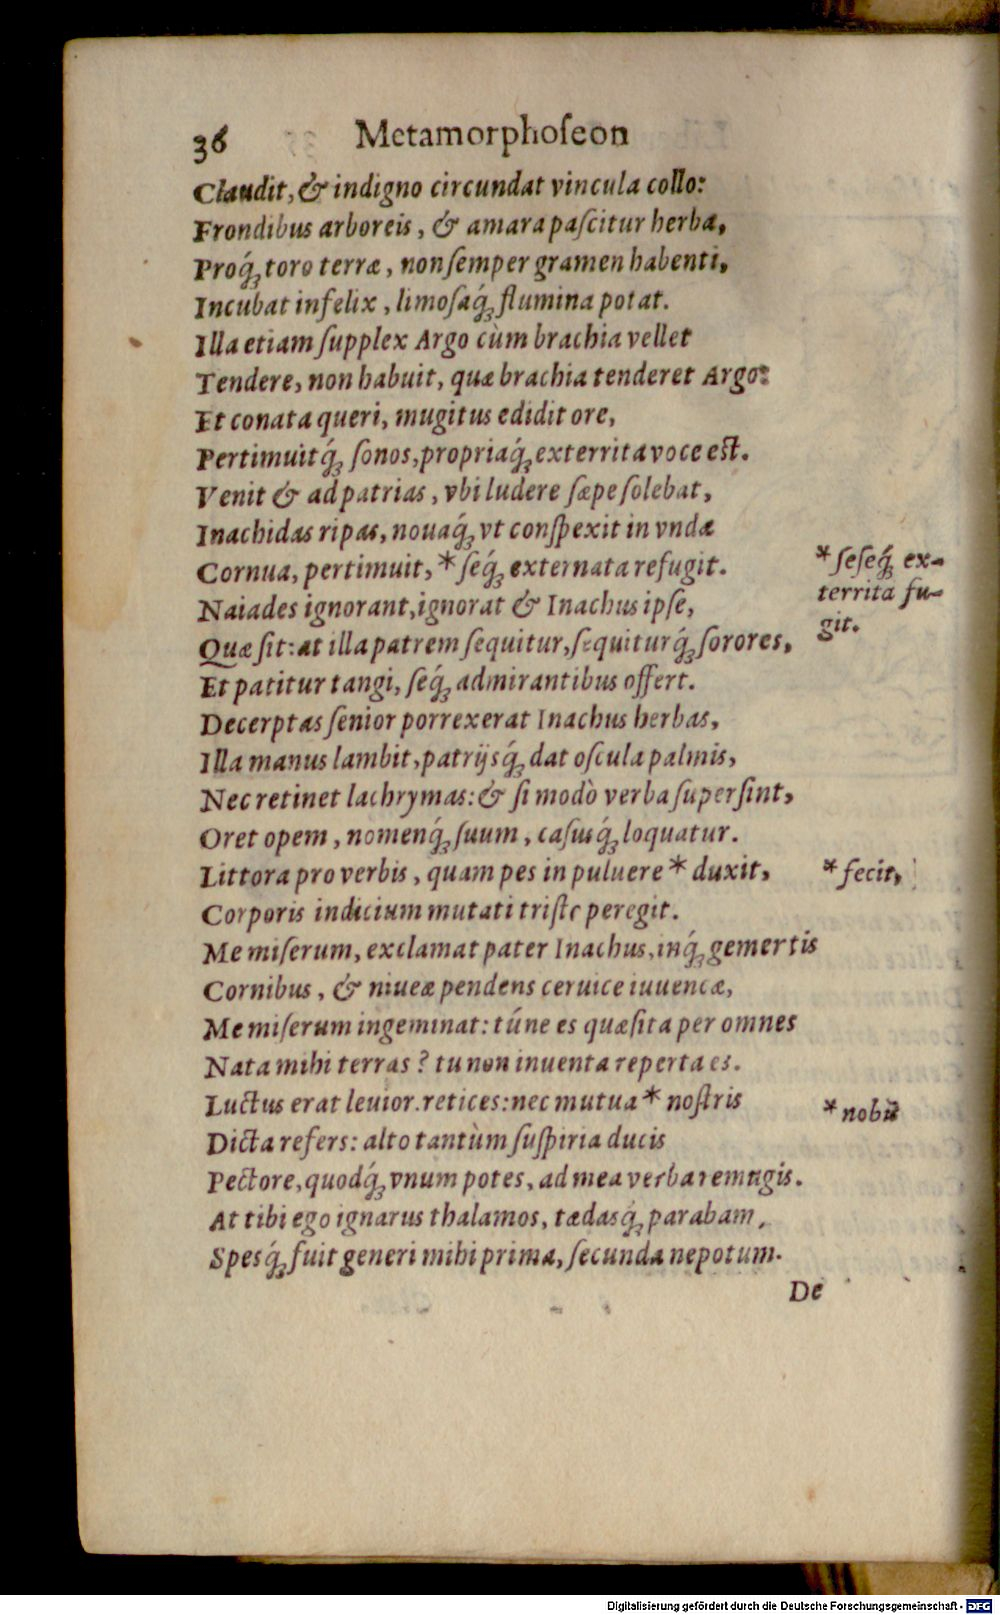 36 Metamorphoſeon
Claudit, & indigno circundat vincula collo:
Frondibus arboreis, & amara paſcitur herba,
Proq́ꝫ toro terræ, non ſemper gramen habenti,
Incubat infelix, limoſaq́ꝫ flumina potat.
Illa etiam ſupplex Argo cùm brachia vellet
Tendere, non habuit, quæ brachia tenderet Argo:
Et conata queri, mugitus edidit ore,
Pertimuitq́ꝫ ſonos, propriaq́ꝫ exterrita voce est.
Venit & ad patrias, vbi ludere ſæpe ſolebat,
Inachidas ripas, nouaq́ꝫ vt conſpexit in vnda
Cornua, pertimuit, * ſeq́ꝫ externata refugit.
* ſeſeq́ꝫ ex-
territa fu-
git.
Naiades ignorant, ignorat & Inachus ipſe,
Quæ ſit: at illa patrem ſequitur, ſequiturq́ꝫ ſorores,
Et patitur tangi, ſeq́ꝫ admirantibus offert.
Decerptas ſenior porrexerat Inachus herbas,
Illa manus lambit, patrijsq́ꝫ dat oſcula palmis,
Nec retinet lachrymas: & ſi modò verba ſuperſint,
Oret opem, nomenq́ꝫ ſuum, caſusq́ꝫ loquatur.
Littora pro verbis, quam pes in puluere * duxit,
* fecit,
Corporis indicium mutati triſte peregit.
Me miſerum, exclamat pater Inachus, inq́ꝫ gementis
Cornibus, & niueæ pendens ceruice iuuencæ,
Me miſerum ingeminat: túne es quæſita per omnes
Nata mihi terras? tu non inuenta reperta es.
Luctus erat leuior. retices: nec mutua * noſtris
* nobis
Dicta refers: alto tantùm ſuſpiria ducis
Pectore, quodq́ꝫ vnum potes, ad mea verba remugis.
At tibi ego ignarus thalamos, tædasq́ꝫ parabam,
Spesq́ꝫ fuit generi mihi prima, ſecunda nepotum.
De
Digitalisierung gefördert durch die Deutsche Forschungsgemeinschaft - DFG